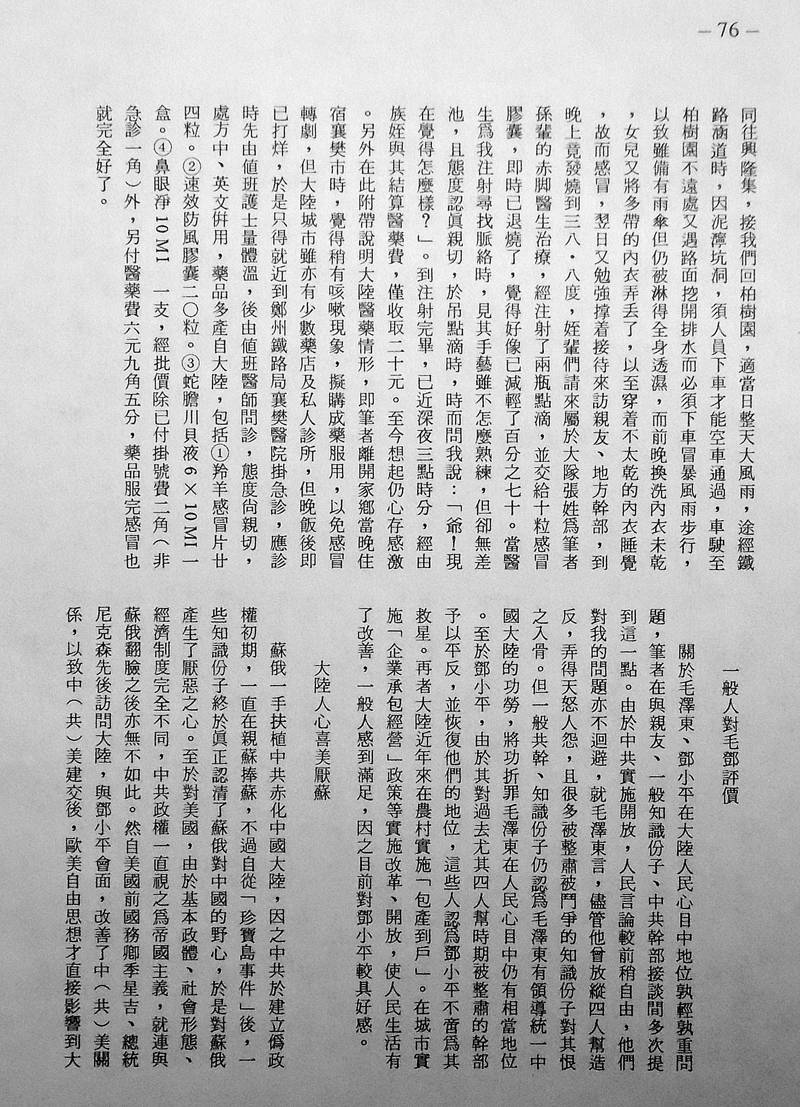 －76－
同往興隆集，接我們回柏樹園，適當日整天大風雨，途經鐵
路涵道時，因泥濘坑洞，須人員下車才能空車通過，車駛至
柏樹園不遠處又遇路面挖開排水而必須下車冒暴風雨步行，
以致雖備有雨傘但仍被淋得全身透濕，而前晚換洗內衣未乾
，女兒又將多帶的內衣弄丟了，以至穿着不太乾的內衣睡覺
，故而感冒，翌日又勉強撐着接待來訪親友、地方幹部，到
晚上竟發燒到三八·八度，姪輩們請來屬於大隊張姓爲筆者
孫輩的赤脚醫生治療，經注射了兩瓶點滴，並交給十粒感冒
膠囊，即時已退燒了，覺得好像已減輕了百分之七十。當醫
生爲我注射尋找脈絡時，見其手藝雖不怎麼熟練，但卻無差
池，且態度認眞親切，於吊點滴時，時而問我說：「爺！現
在覺得怎麼樣？」。到注射完畢，已近深夜三點時分，經由
族姪與其結算醫藥費，僅收取二十元。至今想起仍心存感激
。另外在此附帶說明大陸醫藥情形，即筆者離開家鄉當晚住
宿襄樊市時，覺得稍有咳嗽現象，擬購成藥服用，以免感冒
轉劇，但大陸城市雖亦有少數藥店及私人診所，但晚飯後即
已打烊，於是只得就近到鄭州鐵路局襄樊醫院掛急診，應診
時先由值班護士量體溫，後由值班醫師問診，態度尙親切，
處方中、英文倂用，藥品多產自大陸，包括①羚羊感冒片廿
四粒。②速效防風膠囊二〇粒。③蛇膽川貝液6×10M1一
盒。④鼻眼淨10M1　一支，經批價除已付掛號費二角（非
急診一角）外，另付醫藥費六元九角五分，藥品服完感冒也
就完全好了。
一般人對毛鄧評價
關於毛澤東、鄧小平在大陸人民心目中地位孰輕孰重問
題，筆者在與親友、一般知識份子、中共幹部接談間多次提
到這一點。由於中共實施開放，人民言論較前稍自由，他們
對我的問題亦不迴避，就毛澤東言，儘管他曾放縱四人幫造
反，弄得天怒人怨，且很多被整肅被鬥爭的知識份子對其恨
之入骨。但一般共幹、知識份子仍認爲毛澤東有領導統一中
國大陸的功勞，將功折罪毛澤東在人民心目中仍有相當地位
。至於鄧小平，由於其對過去尤其四人幫時期被整肅的幹部
予以平反，並恢復他們的地位，這些人認爲鄧小平不啻爲其
救星。再者大陸近年來在農村實施「包產到戶」。在城市實
施「企業承包經營」政策等實施改革、開放，使人民生活有
了改善，一般人感到滿足，因之目前對鄧小平較具好感。
大陸人心喜美厭蘇
蘇俄一手扶植中共赤化中國大陸，因之中共於建立僞政
權初期，一直在親蘇捧蘇，不過自從「珍寶島事件」後，一
些知識份子終於眞正認清了蘇俄對中國的野心，於是對蘇俄
產生了厭惡之心。至於對美國，由於基本政體、社會形態、
經濟制度完全不同，中共政權一直視之爲帝國主義，就連與
蘇俄翻臉之後亦無不如此。然自美國前國務卿季星吉、總統
尼克森先後訪問大陸，與鄧小平會面，改善了中（共）美關
係，以致中（共）美建交後，歐美自由思想才直接影響到大